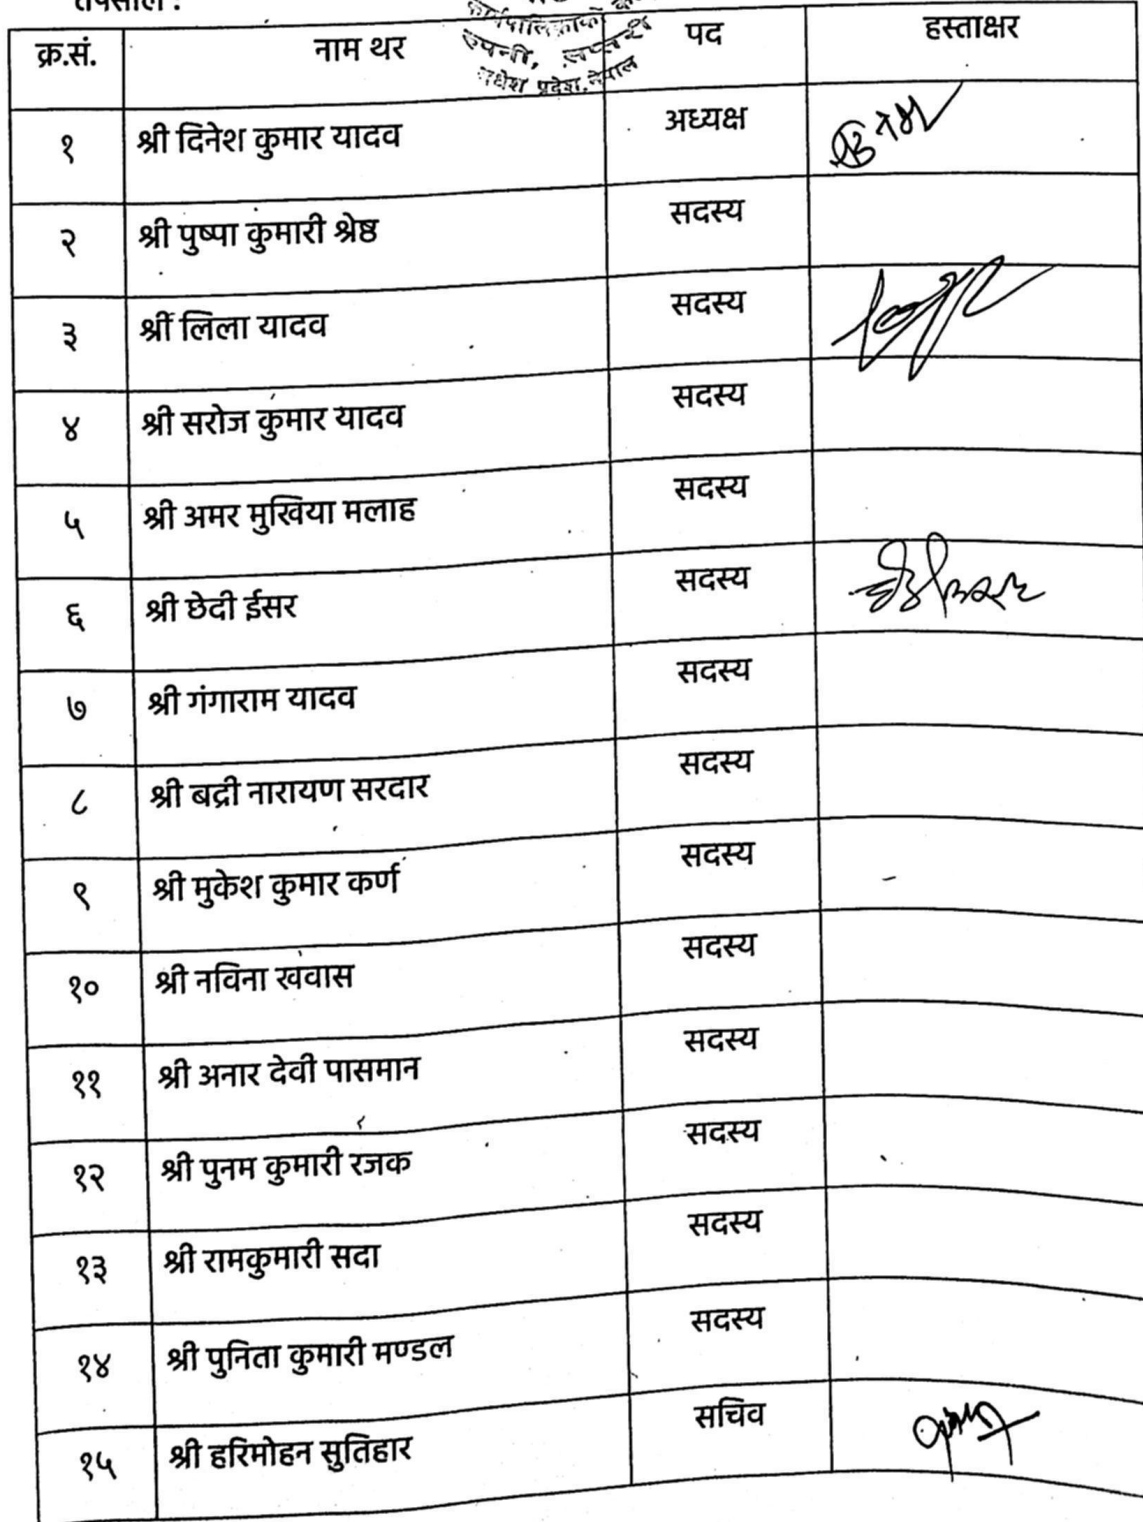 तपसिल :
कार्यपालिकाको
रुपनी, सप्तरी
मधेश प्रदेश, नेपाल
क्र.सं. नाम थर पद हस्ताक्षर
१ श्री दिनेश कुमार यादव अध्यक्ष
२ श्री पुष्पा कुमारी श्रेष्ठ सदस्य
३ श्री लिला यादव सदस्य
४ श्री सरोज कुमार यादव सदस्य
५ श्री अमर मुखिया मलाह सदस्य
६ श्री छेदी ईसर सदस्य
७ श्री गंगाराम यादव सदस्य
८ श्री बद्री नारायण सरदार सदस्य
९ श्री मुकेश कुमार कर्ण सदस्य
१० श्री नविना खवास सदस्य
११ श्री अनार देवी पासमान सदस्य
१२ श्री पुनम कुमारी रजक सदस्य
१३ श्री रामकुमारी सदा सदस्य
१४ श्री पुनिता कुमारी मण्डल सदस्य
१५ श्री हरिमोहन सुतिहार सचिव